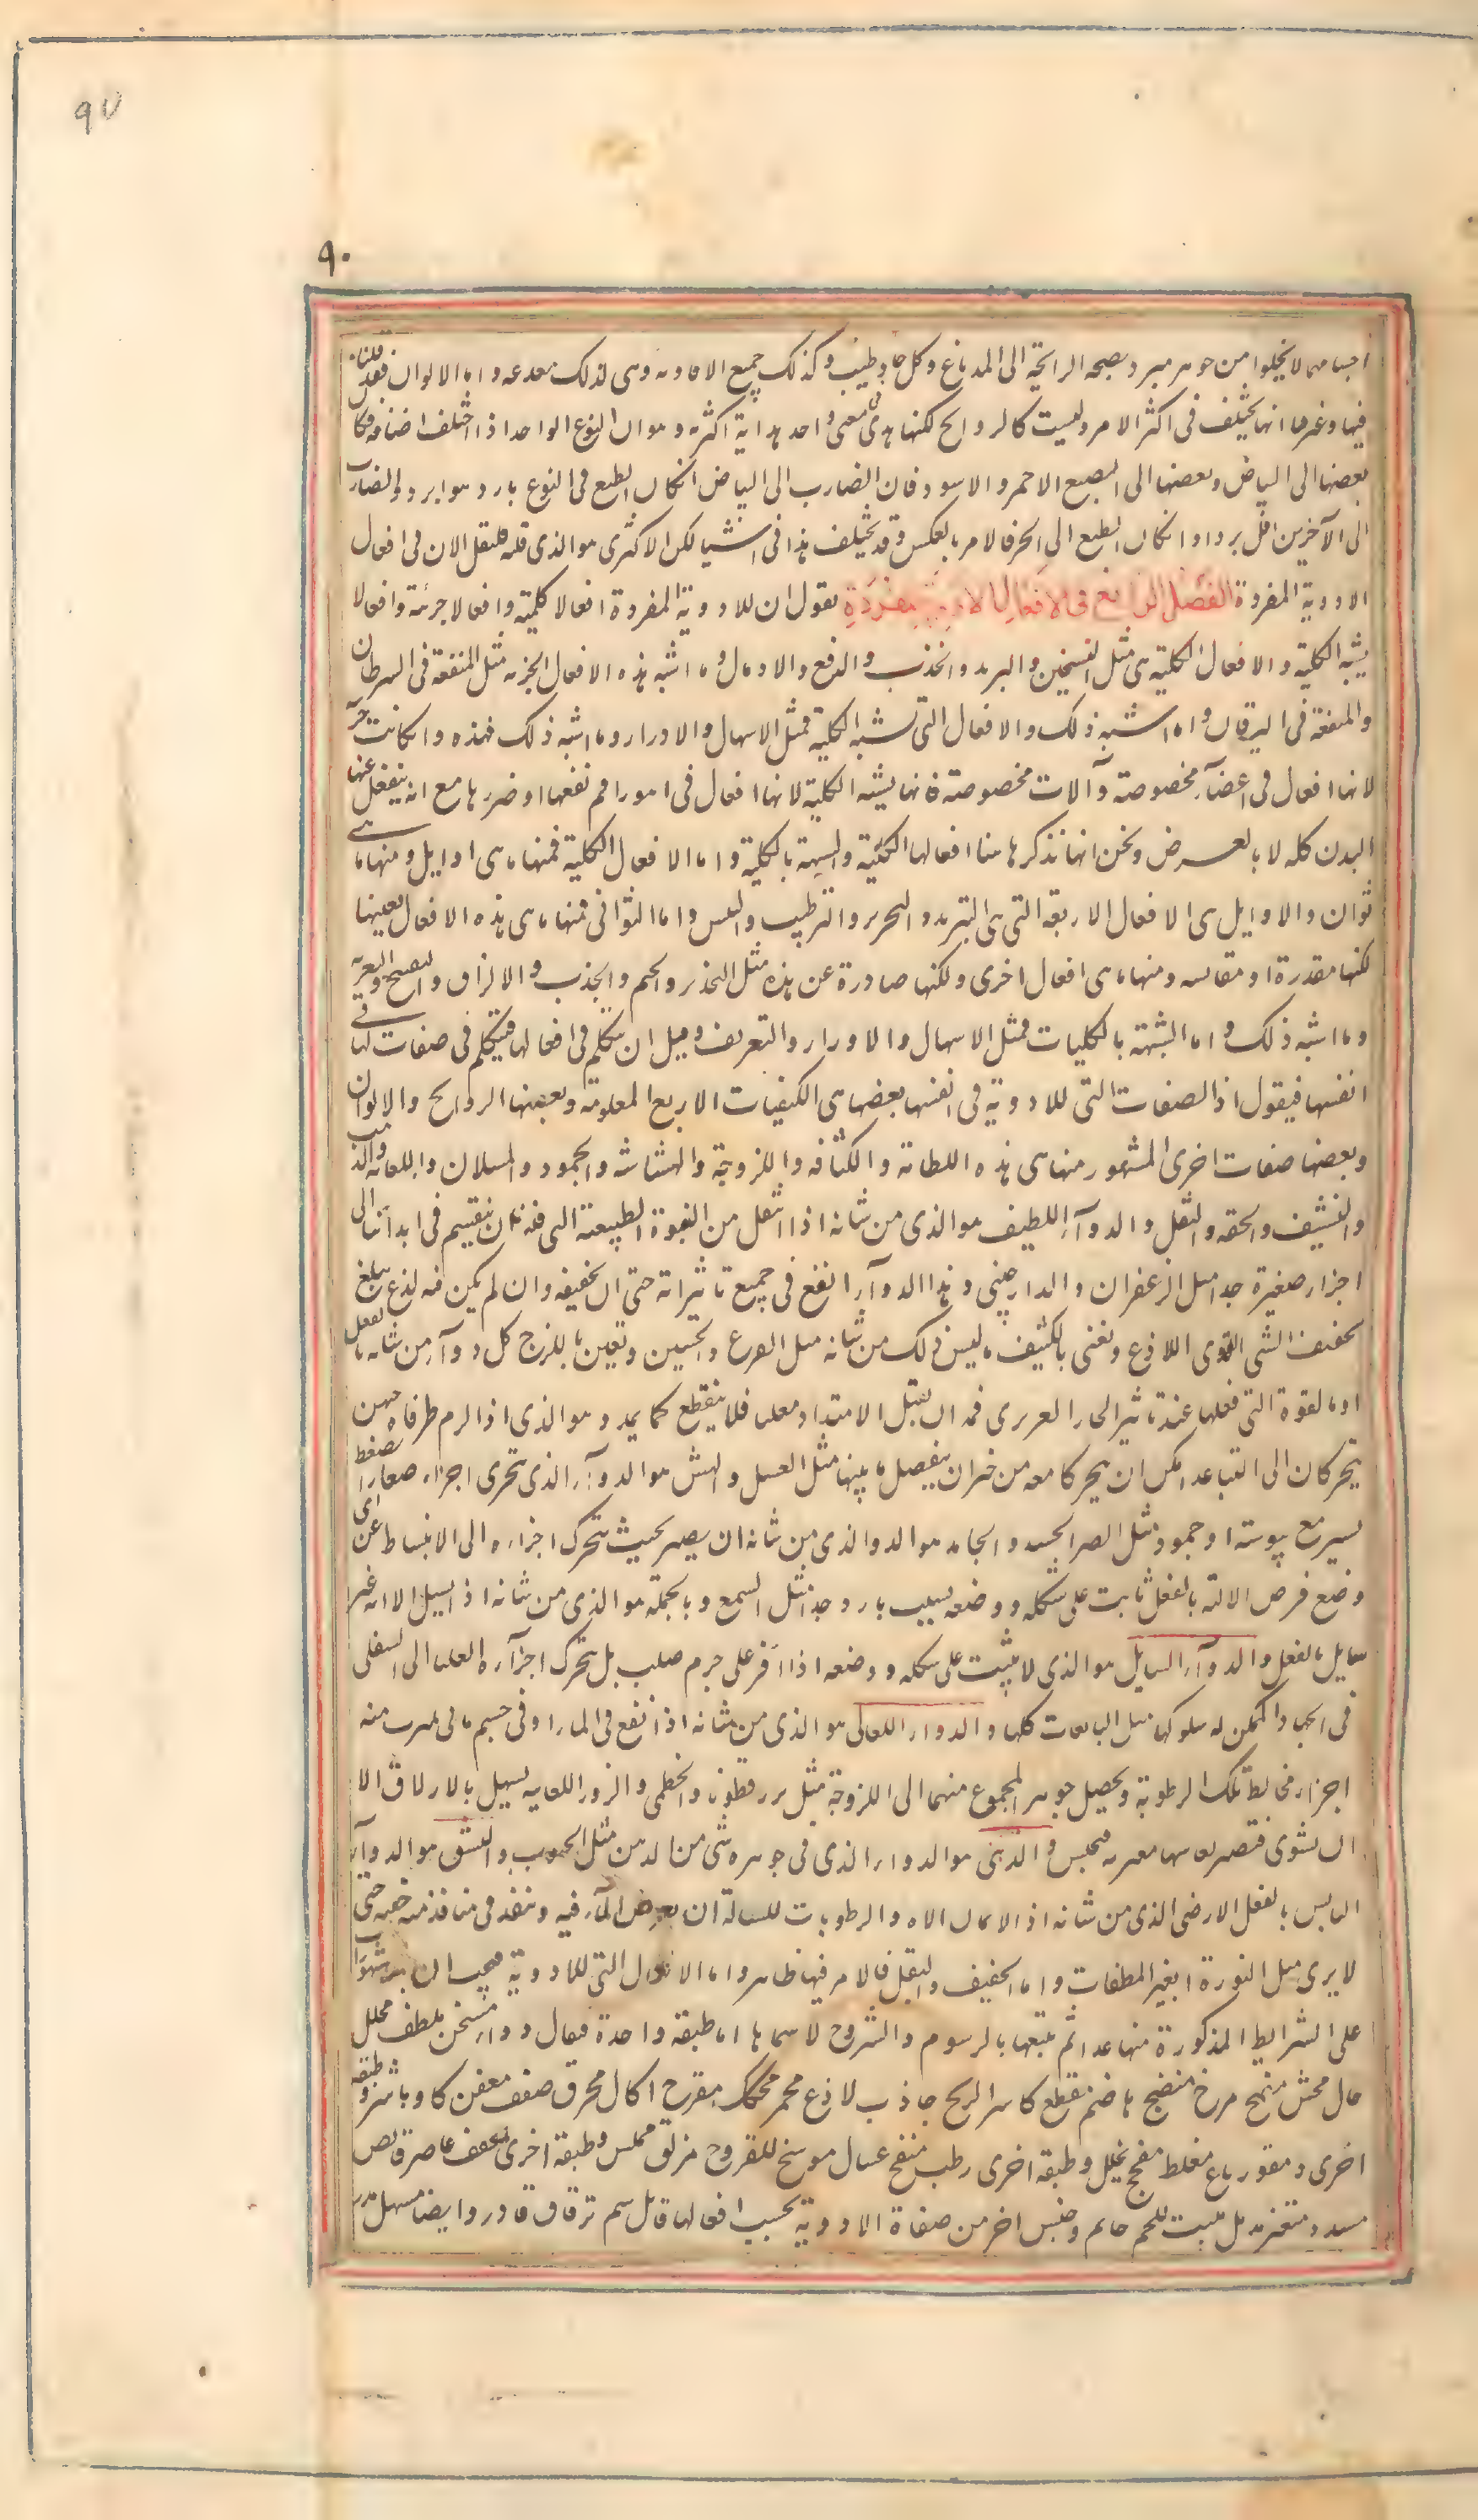 ٩٧
٩٠
اجسامها لا يخلوا من جوهر مبرد يصحبه الرائحة الى الدماغ وكل حار وطيب وكذلك جميع الافاويه وهى لذلك مصدعه واما الالوان فقد قلنا
فيها وعرفنا انها يختلف فى اكثر الامر وليست كالروايح لكنها هدى فى معنى واحد هداية اكثريه وهو ان النوع الواحد اذا اختلف اصنافه وكان
بعضها الى البياض وبعضها الى الصبغ الاحمر والاسود فان الضارب الى البياض انكان الطبع فى النوع بارد هو ابرد والضارب
الى الآخرين اقل بردا وانكان الطبع الى الحر فالامر بالعكس وقد يختلف هذا فى اشيا لكن الاكثرى هو الذى قلنه فلنقل الان فى افعال
الادوية المفردة الفصل الرابع فى الافعال الادوية المفردة نقول ان للادوية المفردة افعالا كلية وافعالا جزئية وافعالا
يشبه الكلية والافعال الكلية هى مثل التسخين والتبريد والجذب والدفع والادمال وما اشبه هذه الافعال الجزئيه مثل المنفعة فى السرطان
والمنفعة فى اليرقان وما اشبه ذلك والافعال التى تشبه الكلية فمثل الاسهال والادرار وما اشبه ذلك فهذه وانكانت جزئية
لانها افعال فى اعضآء مخصوصة وآلات مخصوصة فانها يشبه الكلية لانها افعال فى امور اعم نفعها او ضررها مع انه ينفعل عنها
البدن كله لا بالعرض ونحن انما نذكر ها هنا افعالها الكلية والشبيهة بالكلية واما الافعال الكلية فمنها ما هى اوايل ومنها ما هى
ثوان والاوايل هى الافعال الاربعة التى هى التبريد والتحرير والترطيب واليبس واما الثوانى فمنها ما هى هذه الافعال بعينها
لكنها مقدرة او مقايسه ومنها ما هى افعال اخرى ولكنها صادرة عن هذه مثل التخذير والختم والجذب والالزاق والتفتيح والتغرية
وما اشبه ذلك واما الشبيهة بالكليات فمثل الاسهال والادرار والتعريف وقبل ان نتكلم فى افعالها فنتكلم فى صفات لها فى
انفسها فيقول اذا الصفات التى للادوية فى انفسها بعضها هى الكيفيات الاربع المعلومة وبعضها الروايح والالوان
وبعضها صفات اخرى المشهور منها هى هذه اللطافة والكثافه واللزوجة والهشاشه والجمود والسيلان واللعابيه والدهنية
والتنشيف والخفه والثقل والدوآء اللطيف هو الذى من شانه اذا انفعل من القوة الطبيعة التى فينا ان ينقسم فى ابداننا الى
اجزاء صغيرة جدا مثل الزعفران والدارچينى وهذا الدوآء انفع فى جميع تاثيراته حتى ان تخفيفه وان لم يكن فيه لذع يبلغ
تخفيف الشى القوى اللاذع ونعنى بالكثيف ما ليس ذلك من شانه مثل القرع والجبسين ونعنى باللزج كل دوآء من شانه بالفعل
او بالقوة التى فعلها عند تاثير الحار الغريزى فيه ان يقبل الامتداد معلقا فلا ينقطع كما يمدد وهو الذى اذا الزم طرفاه جسمين
يتحركان الى التباعد امكن ان يتحركا معه من غير ان ينفصل ما بينها مثل العسل والهش هو الدوآء الذى يتجزى اجزاء صغارا بضغط
يسير مع يبوسة او جمود مثل الصبر الجيد والجامد هو الدوا الذى من شانه ان يصير بحيث يتحرك اجزاءه الى الانبساط عن اى
وضع فرض الا انه بالفعل ثابت على شكله ووضعه بسبب بارد جدا مثل الشمع وبالجملة هو الذى من شانه اذ يسيل الا انه غير
سايل بالفعل والدوآء السايل هو الذى لا يثبت على شكله ووضعه اذا اقر على جرم صلب بل يتحرك اجزآءه العليا الى السفلى
فى الجهات الممكن له سلوكها مثل المايعات كلها والدواء اللعابى هو الذى من شانه اذا نقع فى الماء او فى جسم مائى تميزت منه
اجزاء يخالط تلك الرطوبة ويحصل جوهر المجموع منهما الى اللزوجة مثل بزر قطونا والخطمى والبزور اللعابيه يسهل بالازلاق الا
ان تشوى فتصير لعابيتها مغريه فيحبس والدهنى هو الدواء الذى فى جوهره شى من الدهن مثل الحبوب والنشف هو الدوآء
اليابس بالفعل الارضى الذى من شانه اذا لاقاه الماء والرطوبات السيالة ان يغوص المآء فيه وينفذ فى منافذ منه خفيه حتى
لا يرى مثل النورة الغير المطفات واما الخفيف والثقيل فالامر فيها ظاهر واما الافعال التى للادوية فيجب ان
على الشرايط المذكورة منها عدا ثم نتبعها بالرسوم والشروح لاسمايها اما طبقة واحدة فيقال دواء مسخن ملطف محلل
جال مخشن مفتح مرخ منضج هاضم مقطع كاسر الريح جاذب لاذع محمر محكك مقرح اكال محرق مفتت معفن كاو باشر وطبقة
اخرى مقو رادع مغلظ مفجج مخدر وطبقة اخرى رطب منفخ غسال موسخ للقروح مزلق مملس وطبقة اخرى مجفف عاصر قابض
مسدد مغرى مدمل منبت للحم خاتم وجنس اخر من صفاة الادوية بحسب افعالها قاتل سم ترياق قادر وايضا مسهل مدر